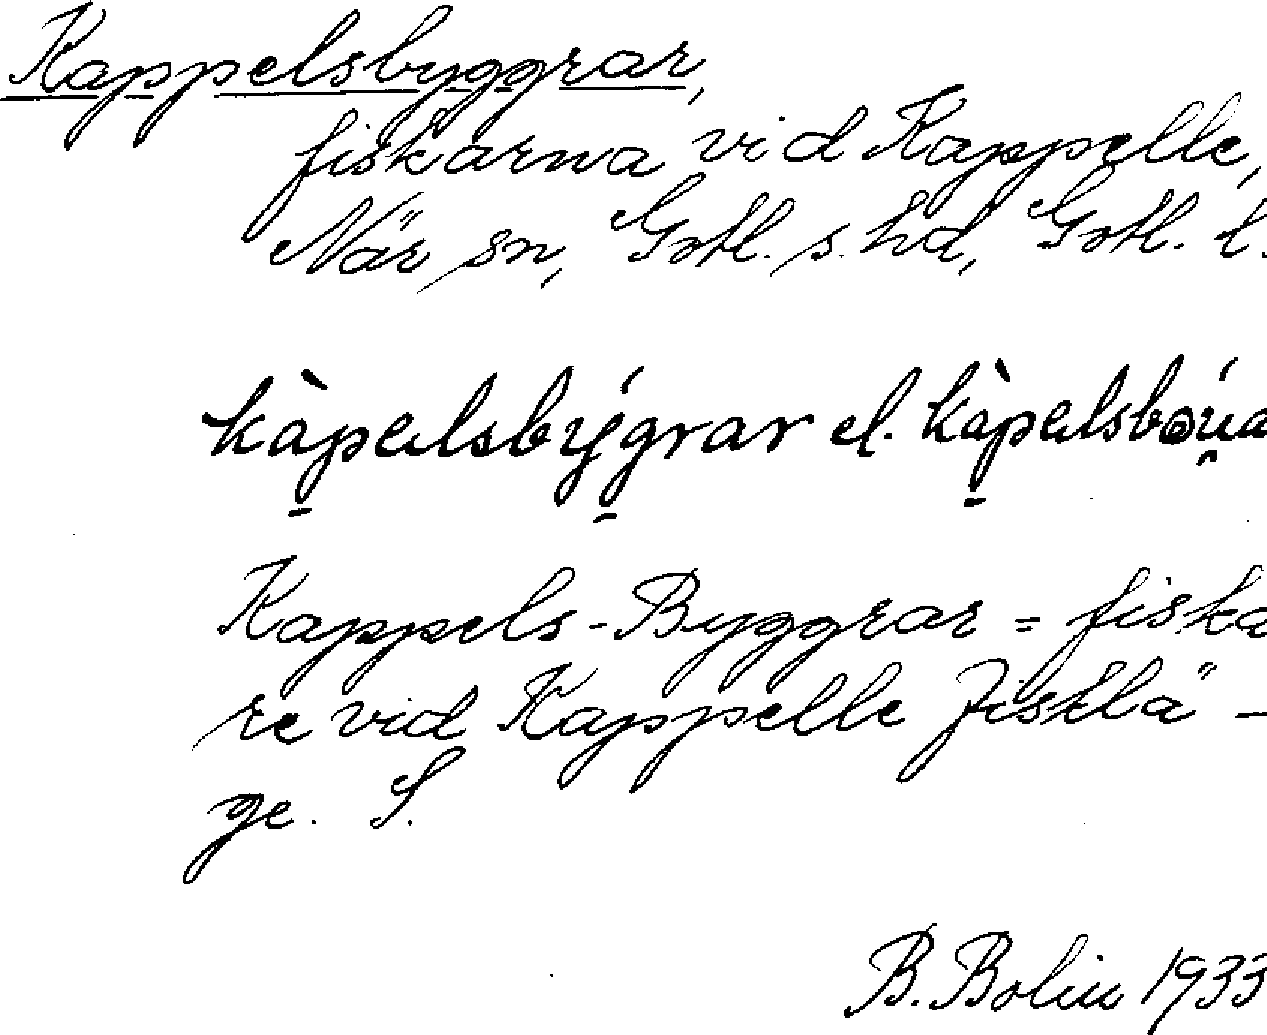 Kappelsbyggrar,
fiskarna vid Kappelle,
När sn, Gotl. s. hd, Gotl. l.
kàpælsbýgrar el. kàpælsbo
Kappels-Byggrar = fiska
re vid Kappelle fisklä-
ge. S.
B. Bolin 1933